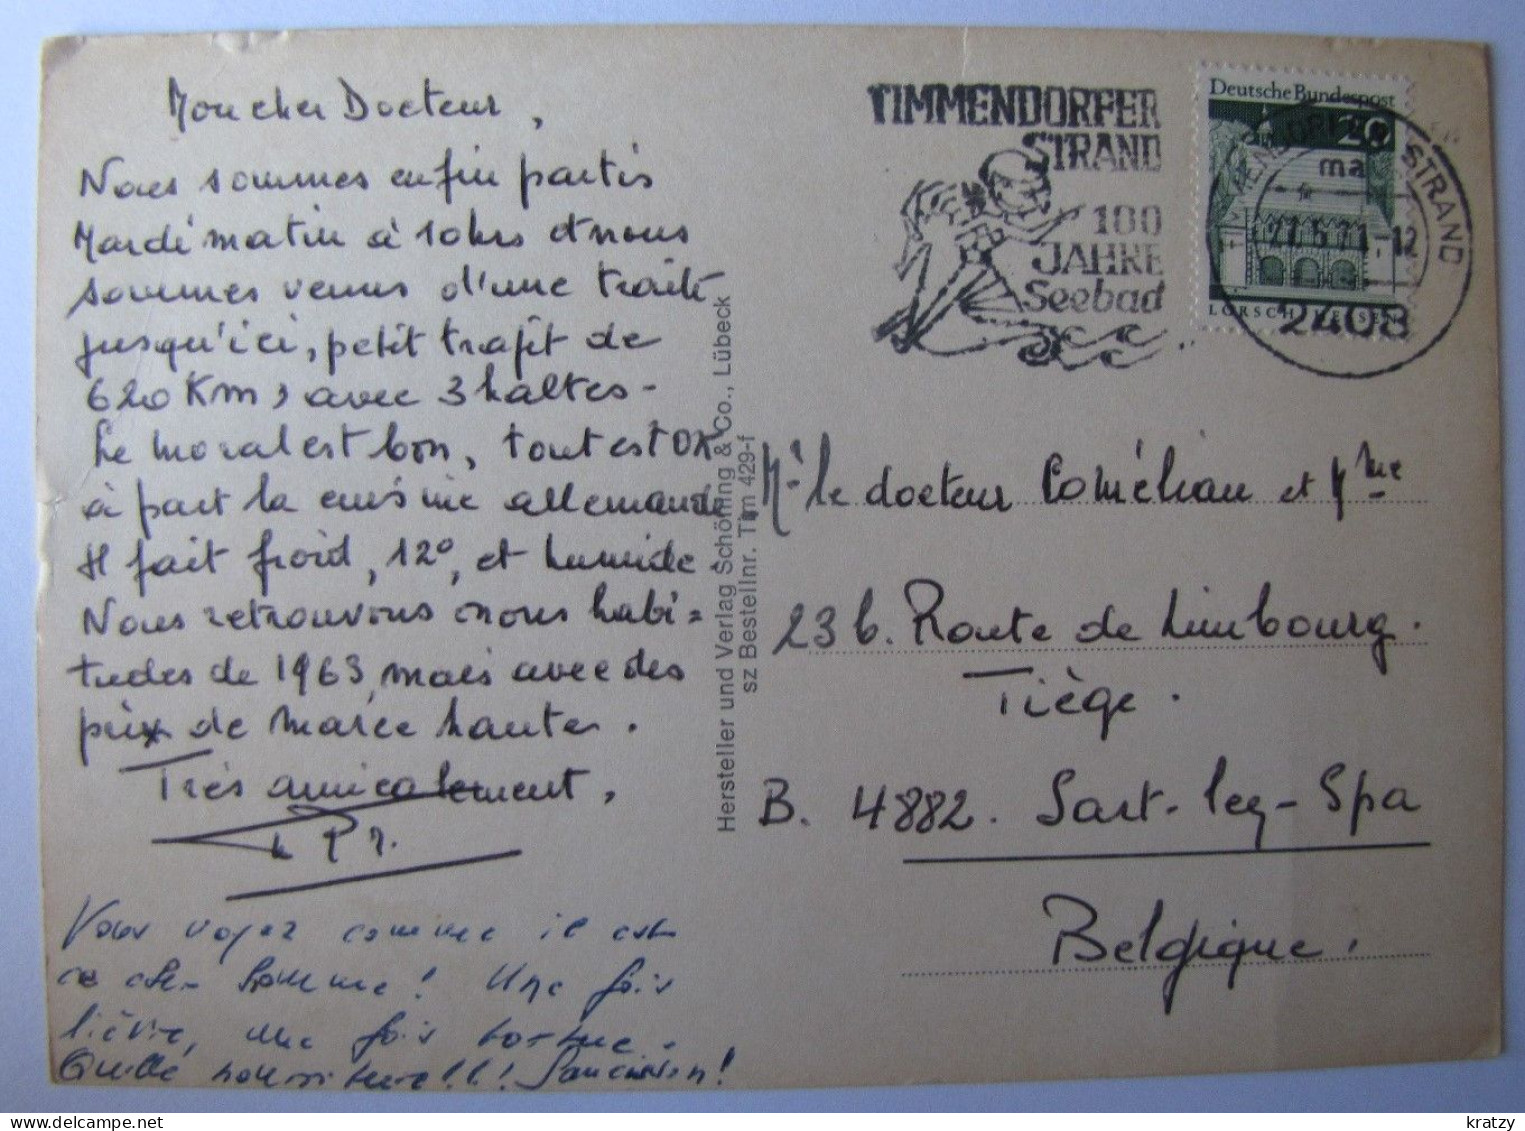 Mon cher Docteur,
Nous sommes enfin partis
Mardi matin à 10hrs et nous
sommes venus d'une traite
jusqu'ici, petit trajet de
620 Km, avec 3 haltes -
Le moral est bon, tout est OK
à part la cuisine allemande
Il fait froid, 12°, et humide.
Nous retrouvons nos habi=
tudes de 1963, mais avec des
prix de marée haute.
Très amicalement,
Vous voyez comme il est
ce cher homme! Une fois
lièvre, une fois tortue.
Quelle nourriture!!! Saucisson!
Hersteller und Verlag Schöning & Co., Lübeck
sz Bestellnr. Tim 429-f
TIMMENDORFER
STRAND
100
JAHRE
Seebad
Deutsche Bundespost
20
ma
27.5.71-12
STRAND
LORSCH HESSEN
2408
Mr le docteur Cornélian et Mme
23 b. Route de Limbourg.
Tiège.
B. 4882. Sart-lez-Spa
Belgique.
kratzy